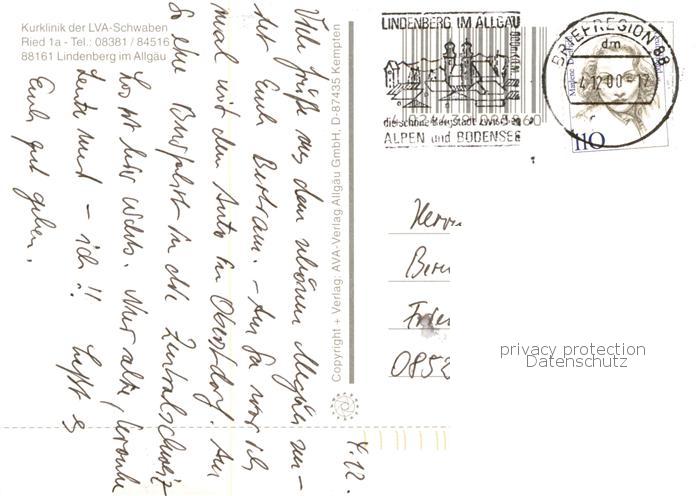 Kurklinik der LVA-Schwaben
Ried 1a - Tel.: 08381 / 84516
88161 Lindenberg im Allgäu
4.12.
Viele Grüße aus dem schönen Allgäu
Euch Bertram. - Am Sa war ich
mal mit dem Auto in Oberstdorf. Am
So eine Busfahrt in die Zentralschweiz
Los ist hier nichts. Nur alte, kranke
Leute und - ich!! Laßt es
Euch gut gehen.
Copyright + Verlag: AVA-Verlag Allgäu GmbH, D-87435 Kempten
LINDENBERG IM ALLGÄU
die schöne Bergstadt zwischen
ALPEN und BODENSEE
BRIEFREGION 88
dm
4.12.00 - 17
110
Herrn
Bern
0852
privacy protection
Datenschutz